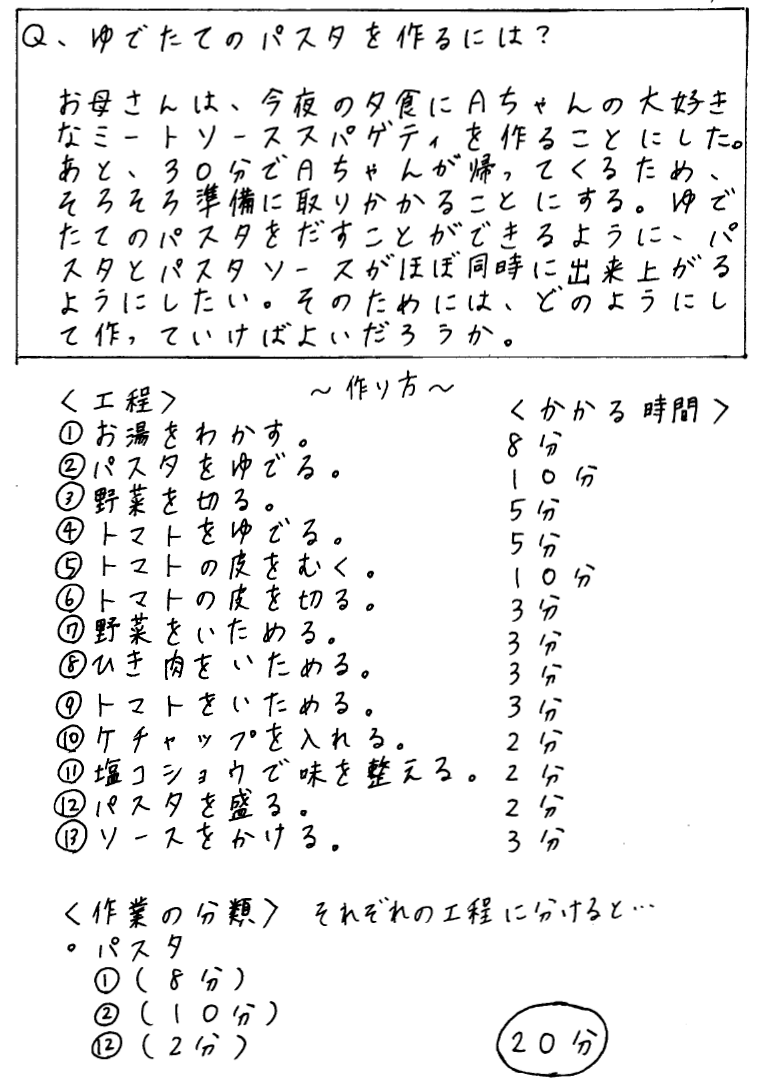 Q、ゆでたてのパスタを作るには？
お母さんは、今夜の夕食にAちゃんの大好き
なミートソーススパゲティを作ることにした。
あと、30分でAちゃんが帰ってくるため、
そろそろ準備に取りかかることにする。ゆで
たてのパスタをだすことができるように、パ
スタとパスタソースがほぼ同時に出来上がる
ようにしたい。そのためには、どのようにし
て作っていけばよいだろうか。
〜作り方〜
〈工程〉 〈かかる時間〉
①お湯をわかす。 8分
②パスタをゆでる。 10分
③野菜を切る。 5分
④トマトをゆでる。 5分
⑤トマトの皮をむく。 10分
⑥トマトの皮を切る。 3分
⑦野菜をいためる。 3分
⑧ひき肉をいためる。 3分
⑨トマトをいためる。 3分
⑩ケチャップを入れる。 2分
⑪塩コショウで味を整える。 2分
⑫パスタを盛る。 2分
⑬ソースをかける。 3分
〈作業の分類〉 それぞれの工程に分けると…
・パスタ
①(8分)
②(10分)
⑫(2分) 20分